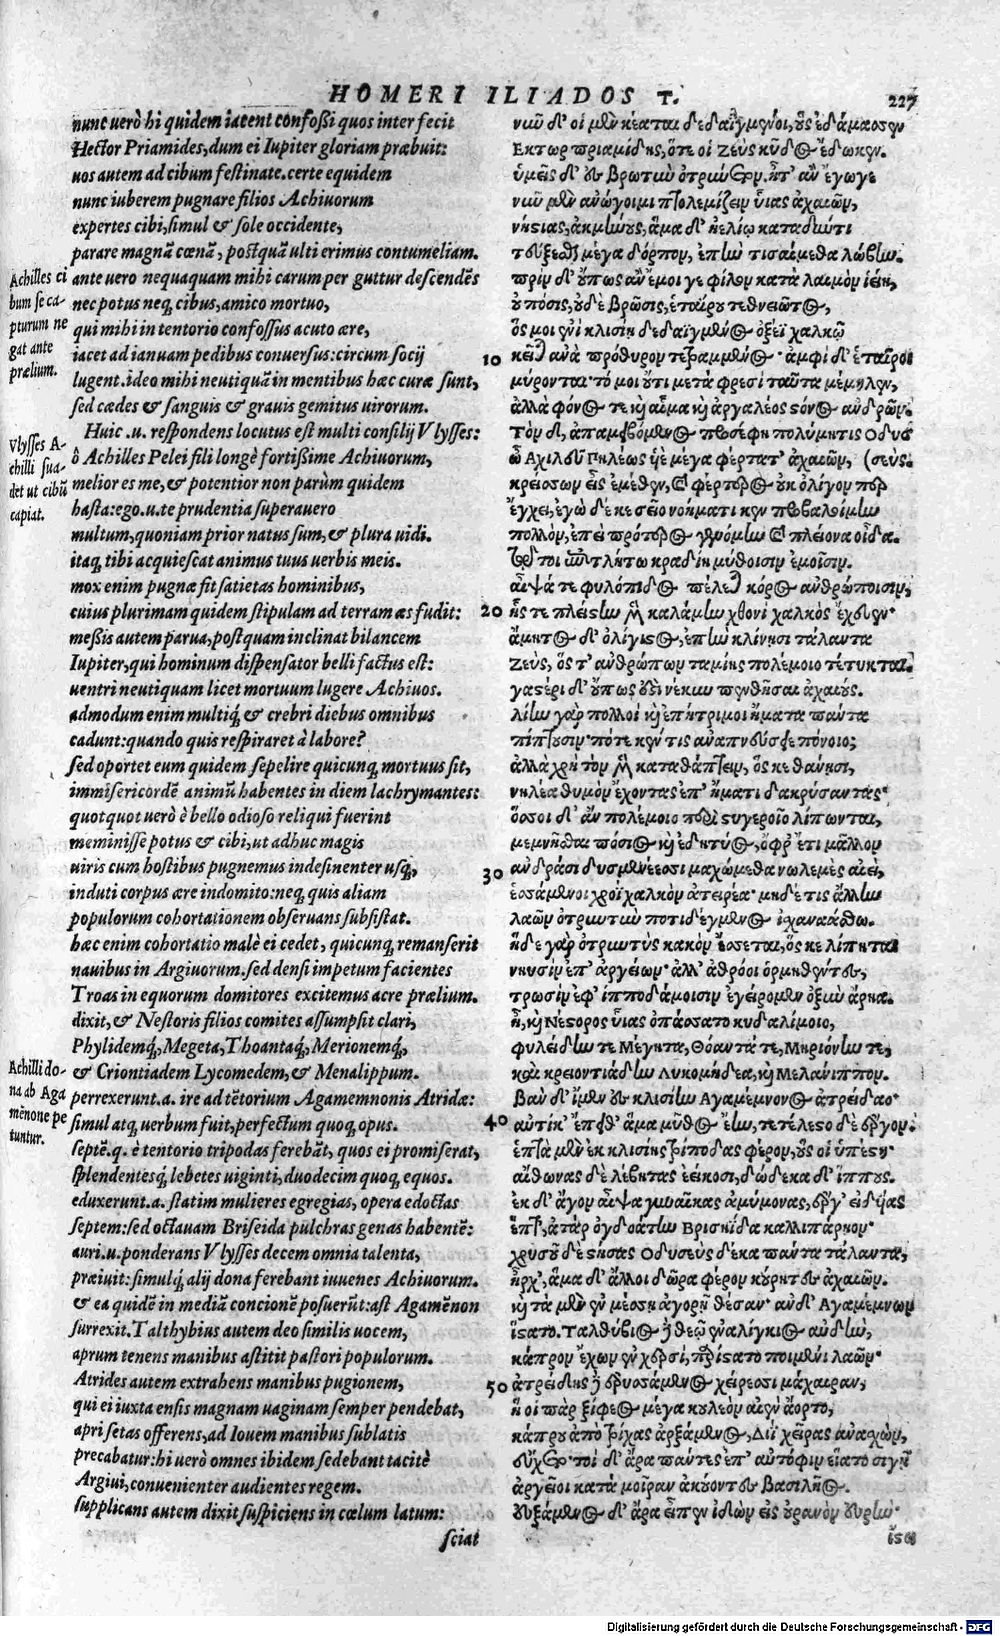 HOMERI ILIADOS T. 227
nunc uerò hi quidem iacent confoßi quos inter fecit
Hector Priamides, dum ei Iupiter gloriam præbuit:
uos autem ad cibum festinate. certe equidem
nunc iuberem pugnare filios Achiuorum
expertes cibi, simul & sole occidente,
parare magnã cœnã, postquã ulti erimus contumeliam.
ante uero nequaquam mihi carum per guttur descendẽs
nec potus neq; cibus, amico mortuo,
qui mihi in tentorio confossus acuto ære,
iacet ad ianuam pedibus conuersus: circum socij
lugent. ideo mihi neutiquã in mentibus hæc curæ sunt,
sed cædes & sanguis & grauis gemitus uirorum.
Huic .u. respondens locutus est multi consilij Vlysses:
ô Achilles Pelei fili longè fortißime Achiuorum,
melior es me, & potentior non parùm quidem
hasta: ego .u. te prudentia superauero
multum, quoniam prior natus sum, & plura uidi.
itaq; tibi acquiescat animus tuus uerbis meis.
mox enim pugnæ fit satietas hominibus,
cuius plurimam quidem stipulam ad terram æs fudit:
meßis autem parua, postquam inclinat bilancem
Iupiter, qui hominum dispensator belli factus est:
uentri neutiquam licet mortuum lugere Achiuos.
admodum enim multiq́; & crebri diebus omnibus
cadunt: quando quis respiraret à labore?
sed oportet eum quidem sepelire quicunq; mortuus sit,
immisericordẽ animũ habentes in diem lachrymantes:
quotquot uerò è bello odioso reliqui fuerint
meminisse potus & cibi, ut adhuc magis
uiris cum hostibus pugnemus indesinenter usq;,
induti corpus ære indomito: neq; quis aliam
populorum cohortationem obseruans subsistat.
hæc enim cohortatio malè ei cedet, quicunq; remanserit
nauibus in Argiuorum. sed densi impetum facientes
Troas in equorum domitores excitemus acre prælium.
dixit, & Nestoris filios comites assumpsit clari,
Phylidemq́;, Megeta, Thoantaq́;, Merionemq́;,
& Criontiadem Lycomedem, & Menalippum.
perrexerunt .a. ire ad tẽtorium Agamemnonis Atridæ:
simul atq; uerbum fuit, perfectum quoq; opus.
septẽ .q. è tentorio tripodas ferebãt, quos ei promiserat,
splendentesq́; lebetes uiginti, duodecim quoq; equos.
eduxerunt .a. statim mulieres egregias, opera edoctas
septem: sed octauam Briseida pulchras genas habentẽ:
auri .u. ponderans Vlysses decem omnia talenta,
præiuit: simulq́; alij dona ferebant iuuenes Achiuorum.
& ea quidẽ in mediã concionẽ posuerũt: ast Agamẽnon
surrexit. Talthybius autem deo similis uocem,
aprum tenens manibus astitit pastori populorum.
Atrides autem extrahens manibus pugionem,
qui ei iuxta ensis magnam uaginam semper pendebat,
apri setas offerens, ad Iouem manibus sublatis
precabatur: hi uerò omnes ibidem sedebant tacitè
Argiui, conuenienter audientes regem.
supplicans autem dixit suspiciens in cœlum latum:
sciat
Achilles ci
bum se ca-
pturum ne
gat ante
prælium.
Vlysses A-
chilli sua-
det ut cibũ
capiat.
Achilli do-
na ab Aga
mẽnone pe
tuntur.
νῦν δ' οἱ μὲν κέαται δεδαϊγμένοι, οὓς ἐδάμασσεν
Εκτωρ πριαμίδης, ὅτε οἱ Ζεὺς κῦδος ἔδωκεν.
ὑμεῖς δ' ἐς βρωτὺν ὀτρύνετον. ἦτ' ἂν ἔγωγε
νῦν μὲν ἀνώγοιμι πτολεμίζειν υἷας ἀχαιῶν,
νήστιας, ἀκμήνους, ἅμα δ' ἠελίῳ καταδύντι
τεύξεσθαι μέγα δόρπον, ἐπὴν τισαίμεθα λώβην.
πρὶν δ' οὔπως ἂν ἔμοι γε φίλον κατὰ λαιμὸν ἰείη,
οὐ πόσις, οὐδὲ βρῶσις, ἑταίρου τεθνειῶτος,
ὅς μοι ἐνὶ κλισίῃ δεδαϊγμένος ὀξέϊ χαλκῷ
10 κεῖται ἀνὰ πρόθυρον τετραμμένος· ἀμφὶ δ' ἑταῖροι
μύρονται· τό μοι οὔτι μετὰ φρεσὶ ταῦτα μέμηλεν,
ἀλλὰ φόνος τε καὶ αἷμα καὶ ἀργαλέος στόνος ἀνδρῶν.
Τὸν δ', ἀπαμειβόμενος προσέφη πολύμητις Οδυσ
ὦ Αχιλεῦ Πηλέως υἱὲ μέγα φέρτατ' ἀχαιῶν, (σεύς.
κρείσσων εἰς ἐμέθεν, καὶ φέρτερος οὐκ ὀλίγον περ
ἔγχει, ἐγὼ δέ κε σεῖο νοήματι κεν προβαλοίμην
πολλὸν, ἐπεὶ πρότερος γενόμην καὶ πλείονα οἶδα.
τῷ τοι ἐπιτλήτω κραδίη μύθοισιν ἐμοῖσιν.
αἶψά τε φυλόπιδος πέλεται κόρος ἀνθρώποισιν,
20 ἧς τε πλείστην μὲν καλάμην χθονὶ χαλκὸς ἔχευεν·
ἄμητος δ' ὀλίγιστος, ἐπὴν κλίνησι τάλαντα
Ζεὺς, ὅς τ' ἀνθρώπων ταμίης πολέμοιο τέτυκται.
γαστέρι δ' οὔπως ἐστὶ νέκυν πενθῆσαι ἀχαιούς.
λίην γὰρ πολλοὶ καὶ ἐπήτριμοι ἤματα πάντα
πίπτουσιν· πότε κέν τις ἀναπνεύσειε πόνοιο;
ἀλλὰ χρὴ τὸν μὲν καταθάπτειν, ὅς κε θάνησι,
νηλέα θυμὸν ἔχοντας ἐπ' ἤματι δακρύσαντας·
ὅσσοι δ' ἂν πολέμοιο περὶ στυγεροῖο λίπωνται,
μεμνῆσθαι πόσιος καὶ ἐδητύος, ὄφρ' ἔτι μᾶλλον
30 ἀνδράσι δυσμενέεσσι μαχώμεθα νωλεμὲς αἰεὶ,
ἑσσάμενοι χροῒ χαλκὸν ἀτειρέα· μηδέ τις ἄλλην
λαῶν ὀτρυντὺν ποτιδέγμενος ἰχαναάσθω.
ἥδε γὰρ ὀτρυντὺς κακὸν ἔσσεται, ὅς κε λίπηται
νηυσὶν ἐπ' ἀργείων· ἀλλ' ἀθρόοι ὁρμηθέντες,
τρωσὶν ἐφ' ἱπποδάμοισιν ἐγείρομεν ὀξὺν ἄρηα.
ἦ, καὶ Νέστορος υἷας ὀπάσσατο κυδαλίμοιο,
φυλείδην τε Μέγητα, Θόαντά τε, Μηριόνην τε,
καὶ κρειοντιάδην Λυκομήδεα, καὶ Μελάνιππον.
βὰν δ' ἴμεν ἐς κλισίην Αγαμέμνονος ἀτρείδαο·
40 αὐτίκ' ἔπειθ' ἅμα μῦθος ἔην, τετέλεστο δὲ ἔργον.
ἑπτὰ μὲν ἐκ κλισίης τρίποδας φέρον, οὕς οἱ ὑπέστη.
αἴθωνας δὲ λέβητας ἐείκοσι, δώδεκα δ' ἵππους.
ἐκ δ' ἄγον αἶψα γυναῖκας ἀμύμονας, ἔργ' εἰδυίας
ἕπτ', ἀτὰρ ὀγδοάτην Βρισηίδα καλλιπάρηον·
χρυσοῦ δὲ στήσας Οδυσεὺς δέκα πάντα τάλαντα,
ἦρχ', ἅμα δ' ἄλλοι δῶρα φέρον κούρητες ἀχαιῶν.
καὶ τὰ μὲν ἐν μέσσῃ ἀγορῇ θέσαν· ἀνδ' Αγαμέμνων
ἵστατο. Ταλθύβιος δὲ θεῷ ἐναλίγκιος αὐδὴν,
κάπρον ἔχων ἐν χερσὶ, παρίστατο ποιμένι λαῶν·
50 ἀτρείδης δὲ ἐρυσσάμενος χείρεσσι μάχαιραν,
ἥ οἱ πὰρ ξίφεος μέγα κουλεὸν αἰὲν ἄορτο,
κάπρου ἀπὸ τρίχας ἀρξάμενος, Διῒ χεῖρας ἀνασχὼν,
εὔχετο· τοὶ δ' ἄρα πάντες ἐπ' αὐτόφιν εἵατο σιγῇ
ἀργεῖοι κατὰ μοῖραν ἀκούοντες βασιλῆος.
εὐξάμενος δ' ἄρα εἶπεν ἰδὼν εἰς οὐρανὸν εὐρύν·
ἴστω
Digitalisierung gefördert durch die Deutsche Forschungsgemeinschaft - DFG